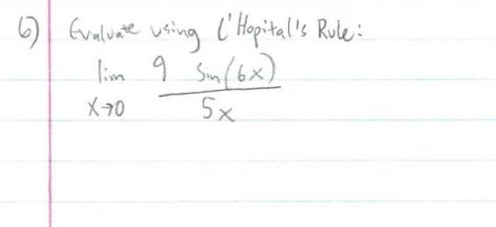 6) Evaluate using L'Hopital's Rule:
lim 9 sin(6x)
x→0 5x